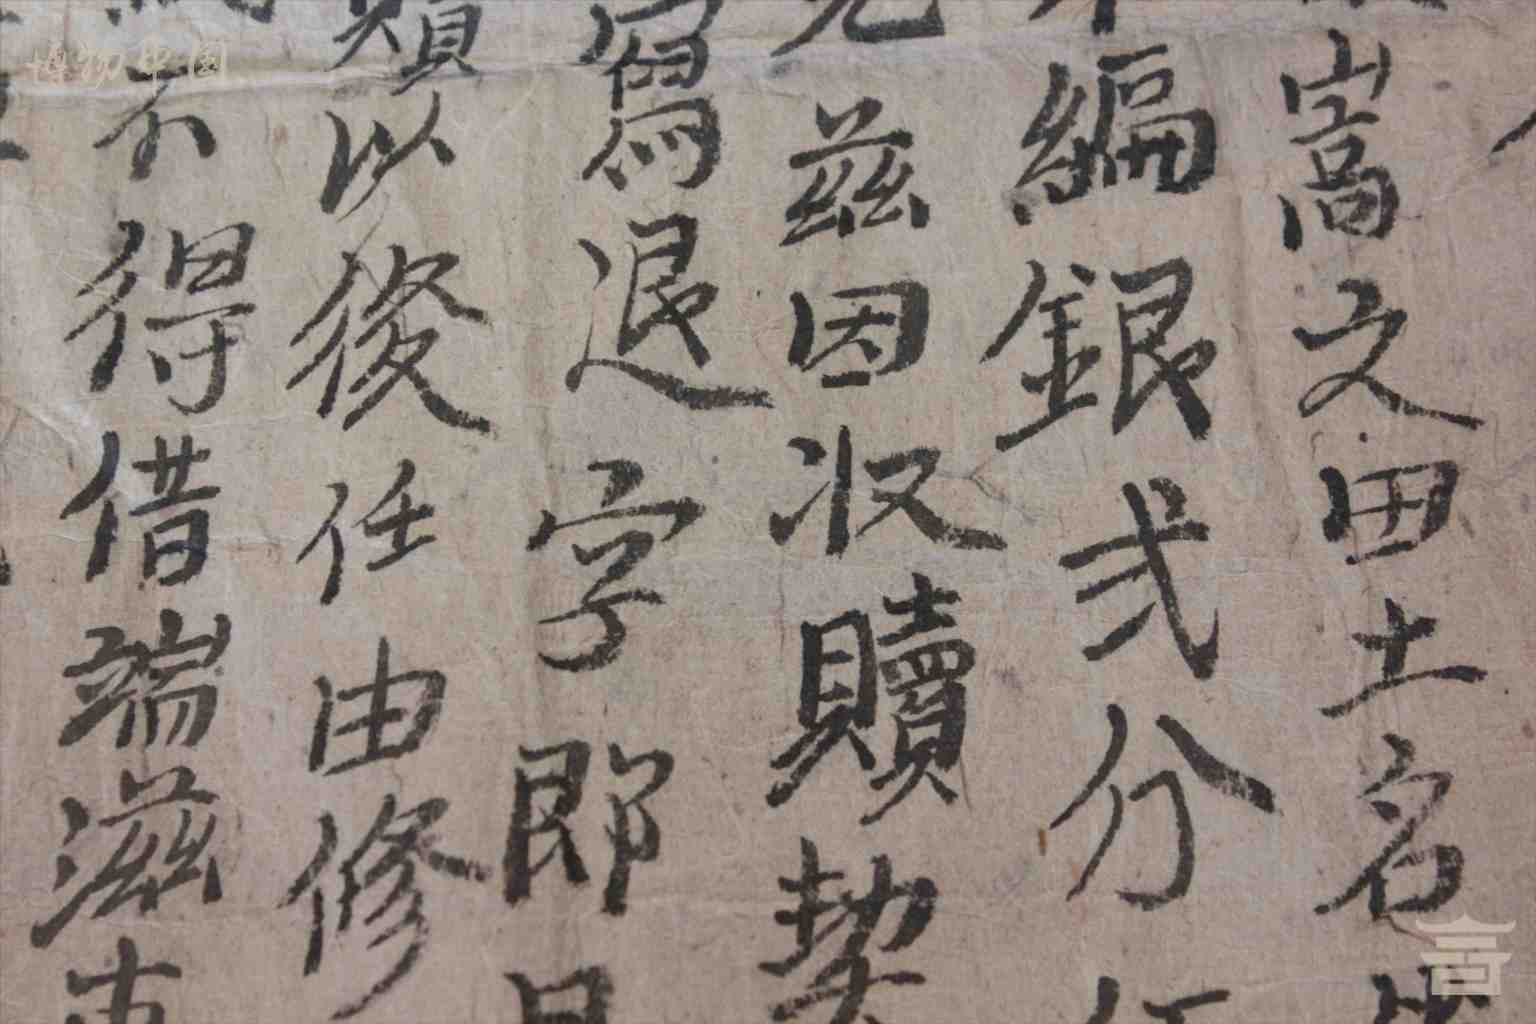 嵩文田土名
編銀弍分
兹因収贖契
寫退字即日
類以後任由修
不得借端滋事
博物中國